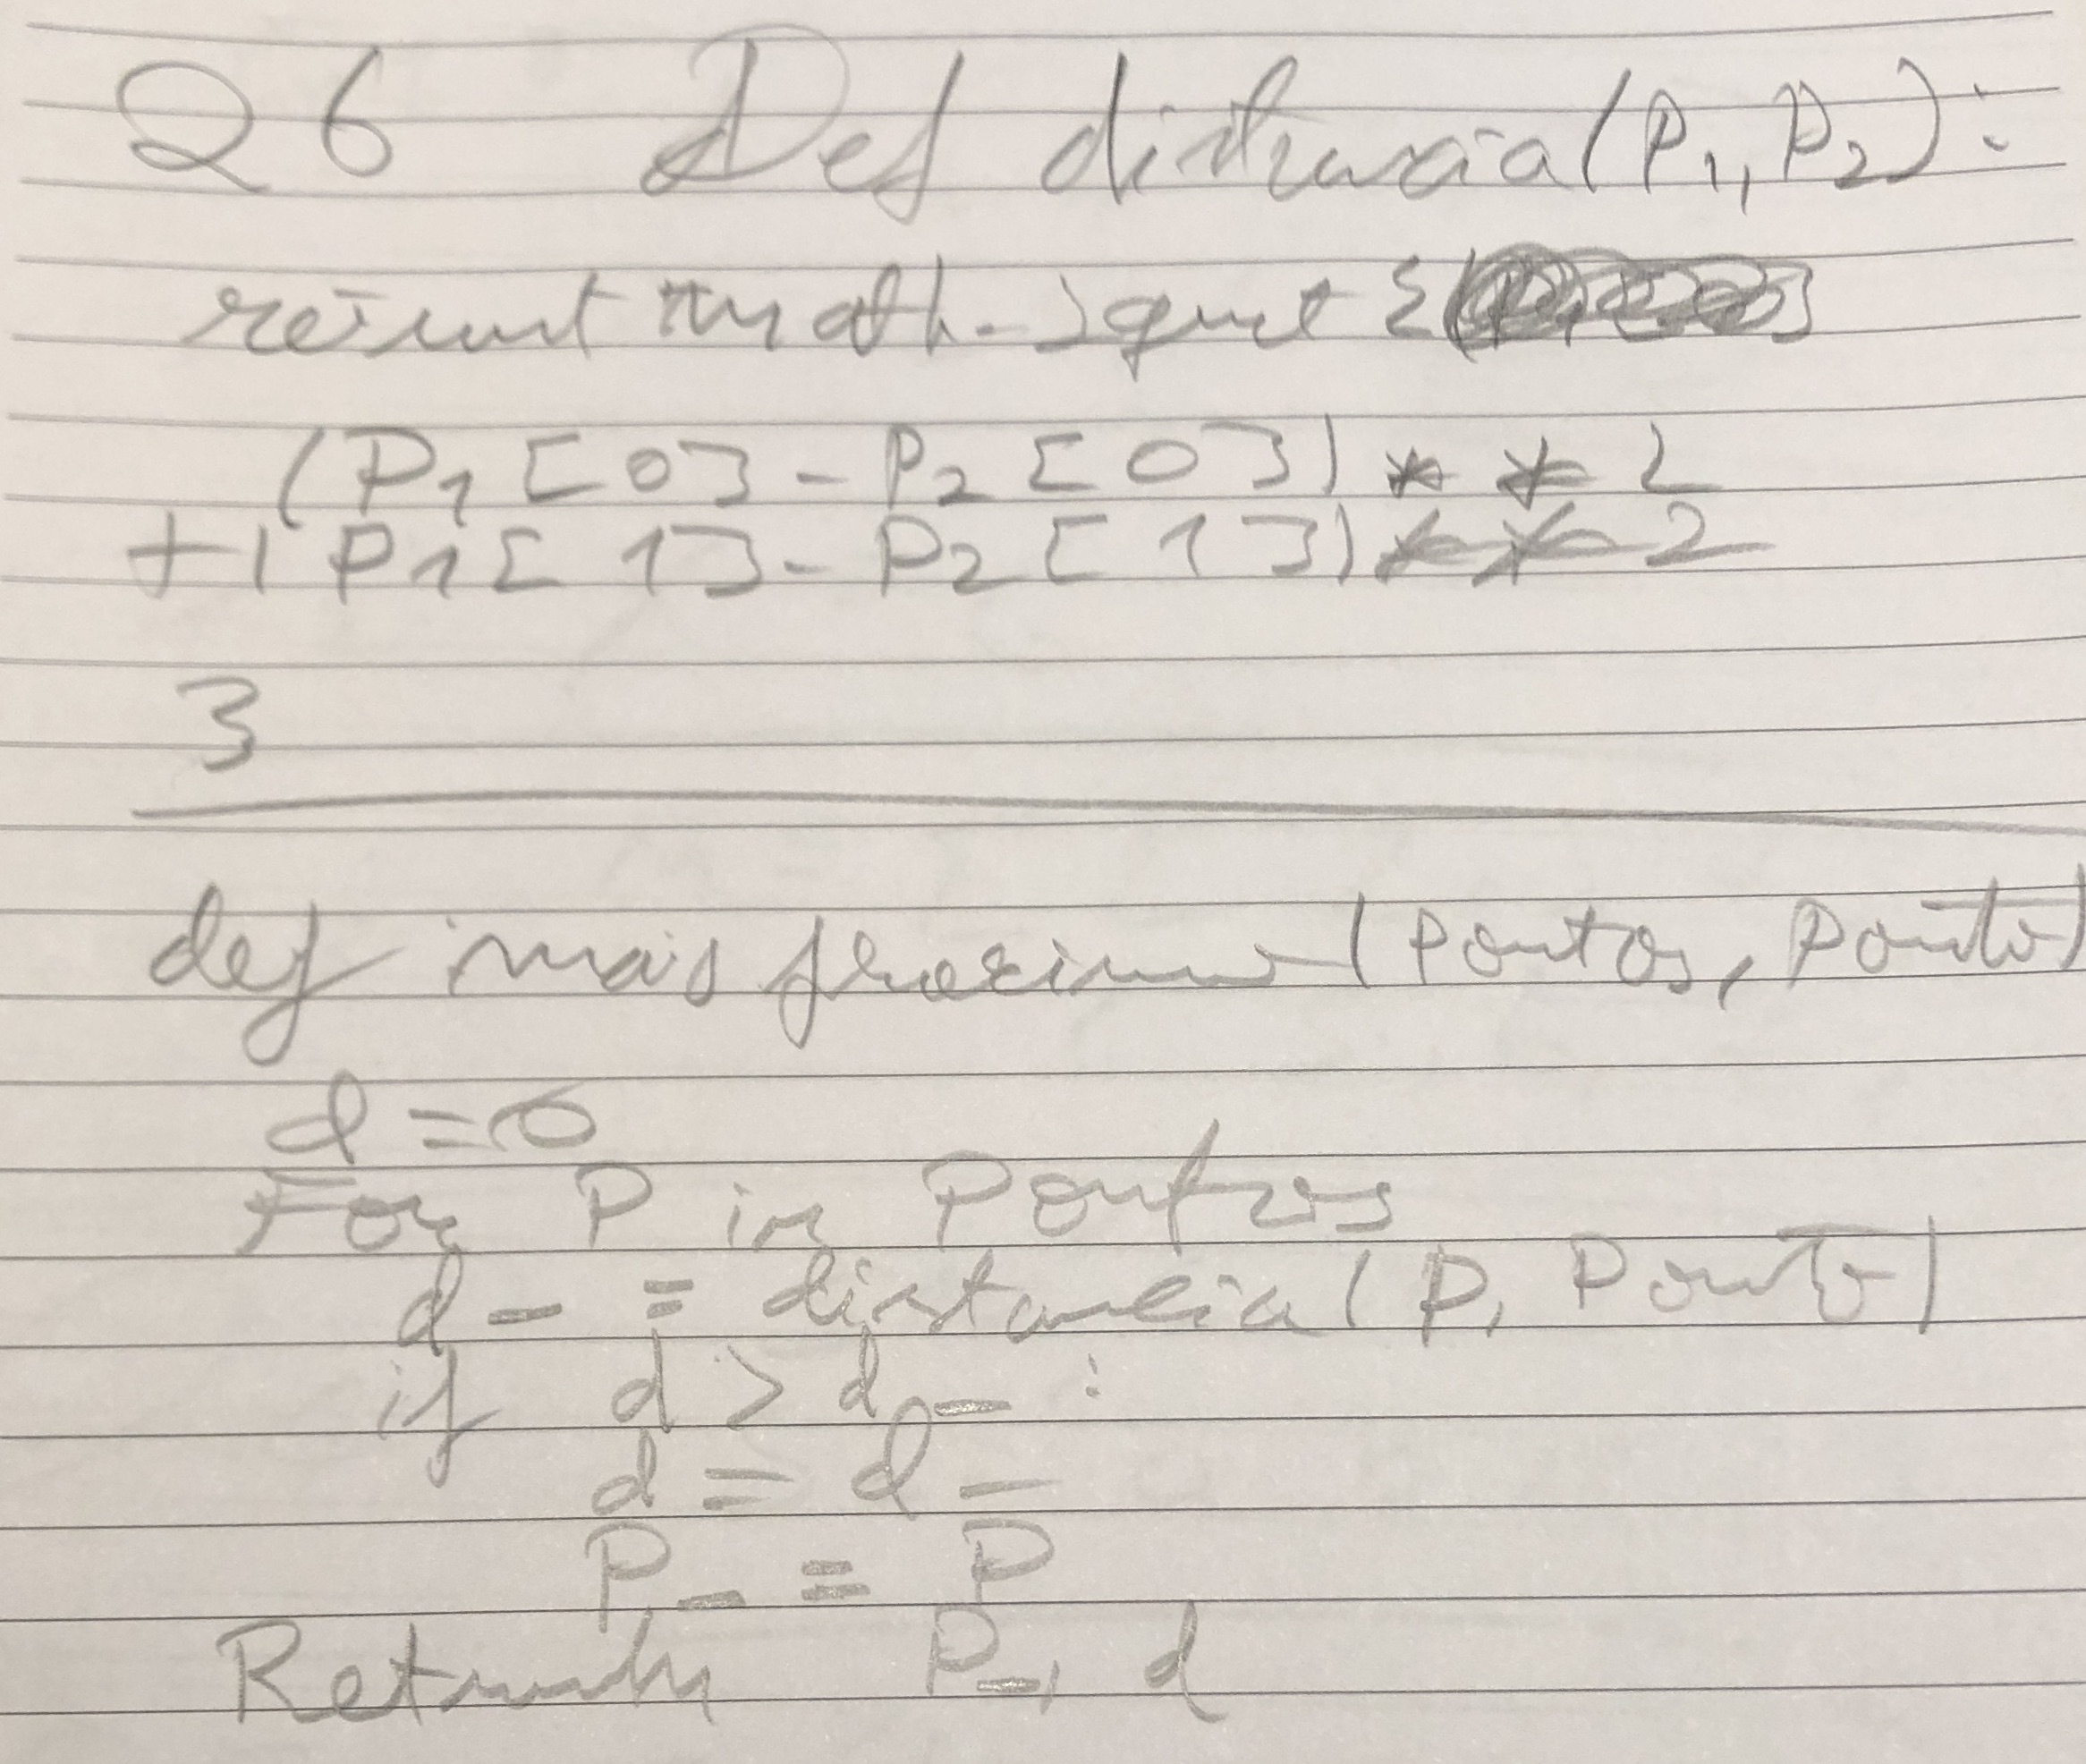 26 Def distancia(P1, P2):
return math.sqrt {
(P1[0] - P2[0]) ** 2
+(P1[1] - P2[1]) ** 2
}
def mais proximo (Pontos, Ponto)
d = 0
For P in Pontos
d_ = distancia(P, Ponto)
if d > d_ :
d = d_
P_ = P
Return P_, d